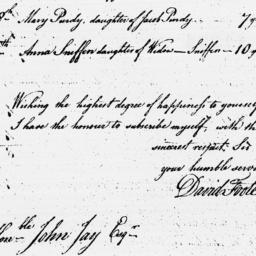 8th Mary Purdy, daughter of Jacob Purdy. — 7 y
Anna Sniffen daughter of Widow — Sniffen — 10 y
Wishing the highest degree of happiness to
I have the honour to subscribe myself, with th
sincerest respect. Sir
your humble serva
David Foote
Hon ble John Jay Esqr